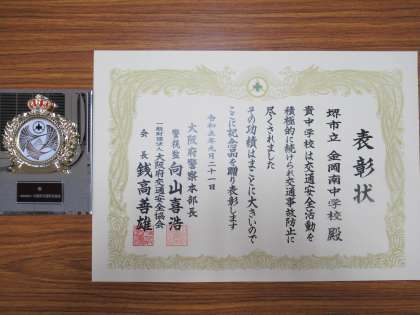 表彰状
堺市立 金岡南中学校 殿
貴中学校は交通安全活動を
積極的に続けられ交通事故防止に
尽くされました
その功績はまことに大きいので
ここに記念品を贈り表彰します
令和五年九月二十一日
大阪府警察本部長
警視監 向山喜浩
一般財団法人 大阪府交通安全協会
会長 銭高善雄